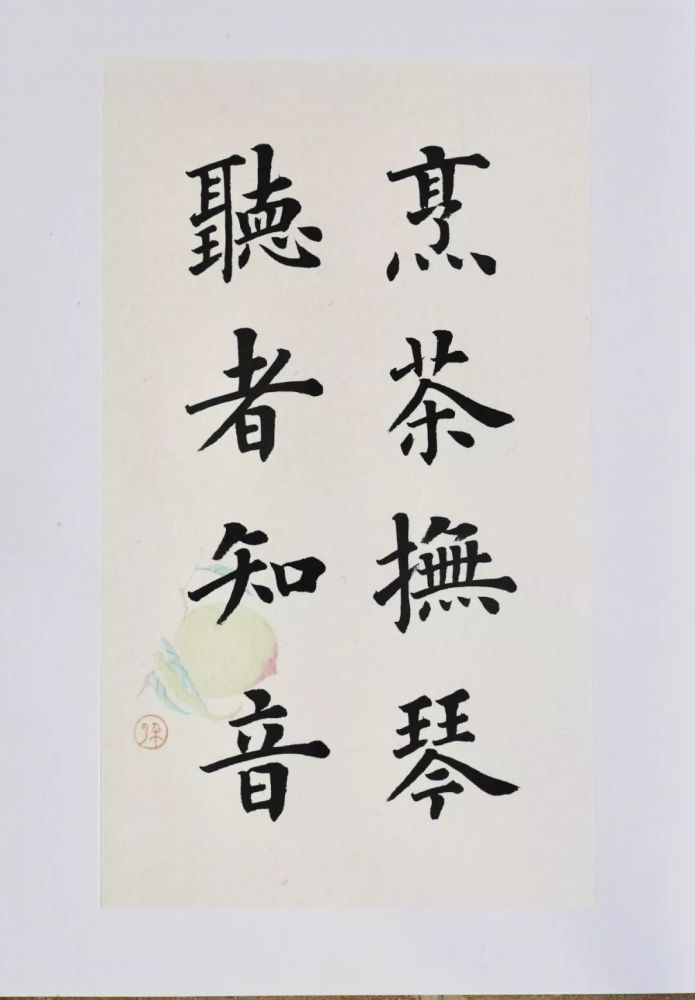 烹茶撫琴
聽者知音